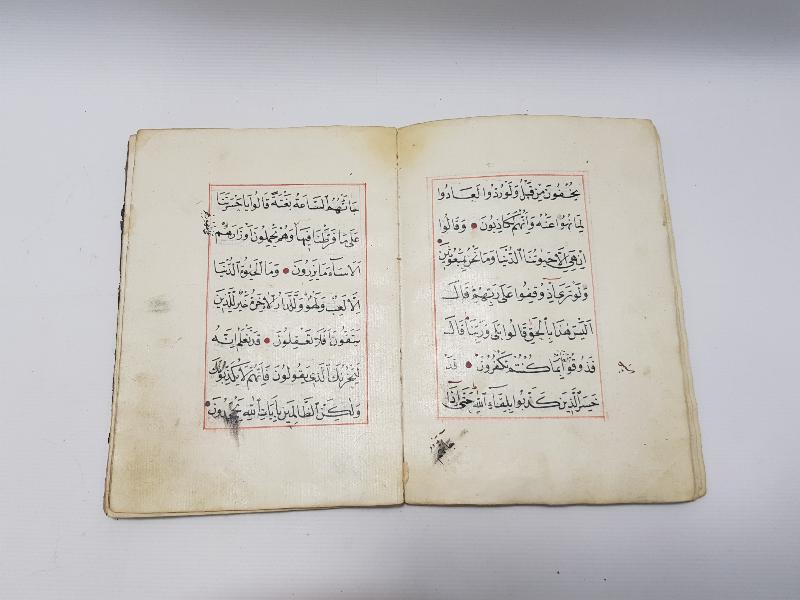 يخفون من قبل ولو ردوا لعادوا
لما نهوا عنه وانهم لكاذبون وقالوا
ان هي الا حيوتنا الدنيا وما نحن بمبعوثين
ولو ترى اذ وقفوا على ربهم قال
اليس هذا بالحق قالوا بلى وربنا قال
فذوقوا بما كنتم تكفرون قد
خسر الذين كذبوا بلقاء الله حتى اذا
جاءتهم الساعة بغتة قالوا يا حسرتنا
على ما فرطنا فيها وهم يحملون اوزارهم
الا ساء ما يزرون وما الحيوة الدنيا
الا لعب ولهو وللدار الاخرة خير للذين
يتقون افلا تعقلون قد نعلم انه
ليحزنك الذي يقولون فانهم لا يكذبونك
ولكن الظالمين بايات الله يجحدون